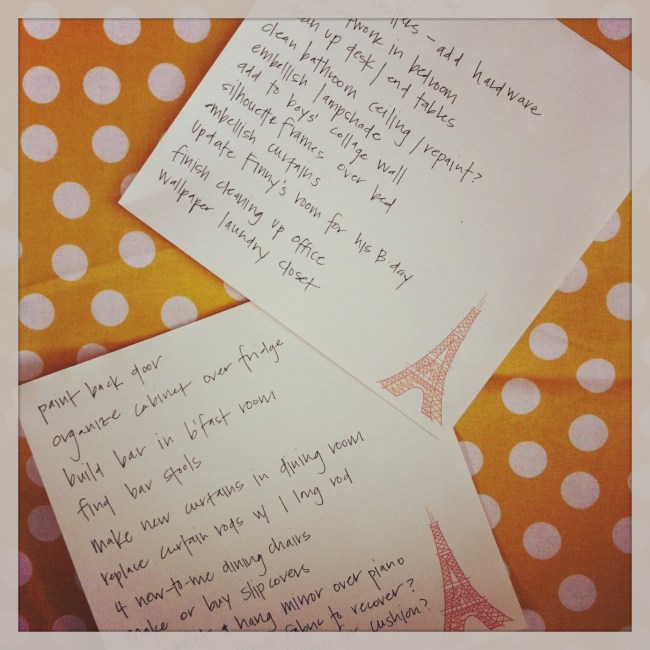 – add hardware
artwork in bedroom
clean up desk/end tables
clean bathroom ceiling/repaint?
embellish lampshade
add to boys' collage wall
silhouette frames over bed
embellish curtains
update Finny's room for his B-day
finish cleaning up office
wallpaper laundry closet
paint back door
organize cabinet over fridge
build bar in b'fast room
find bar stools
make new curtains in dining room
replace curtain rods w/ 1 long rod
4 new-to-me dining chairs
make or buy slipcovers
+ hang mirror over piano
fabric to recover?
cushion?